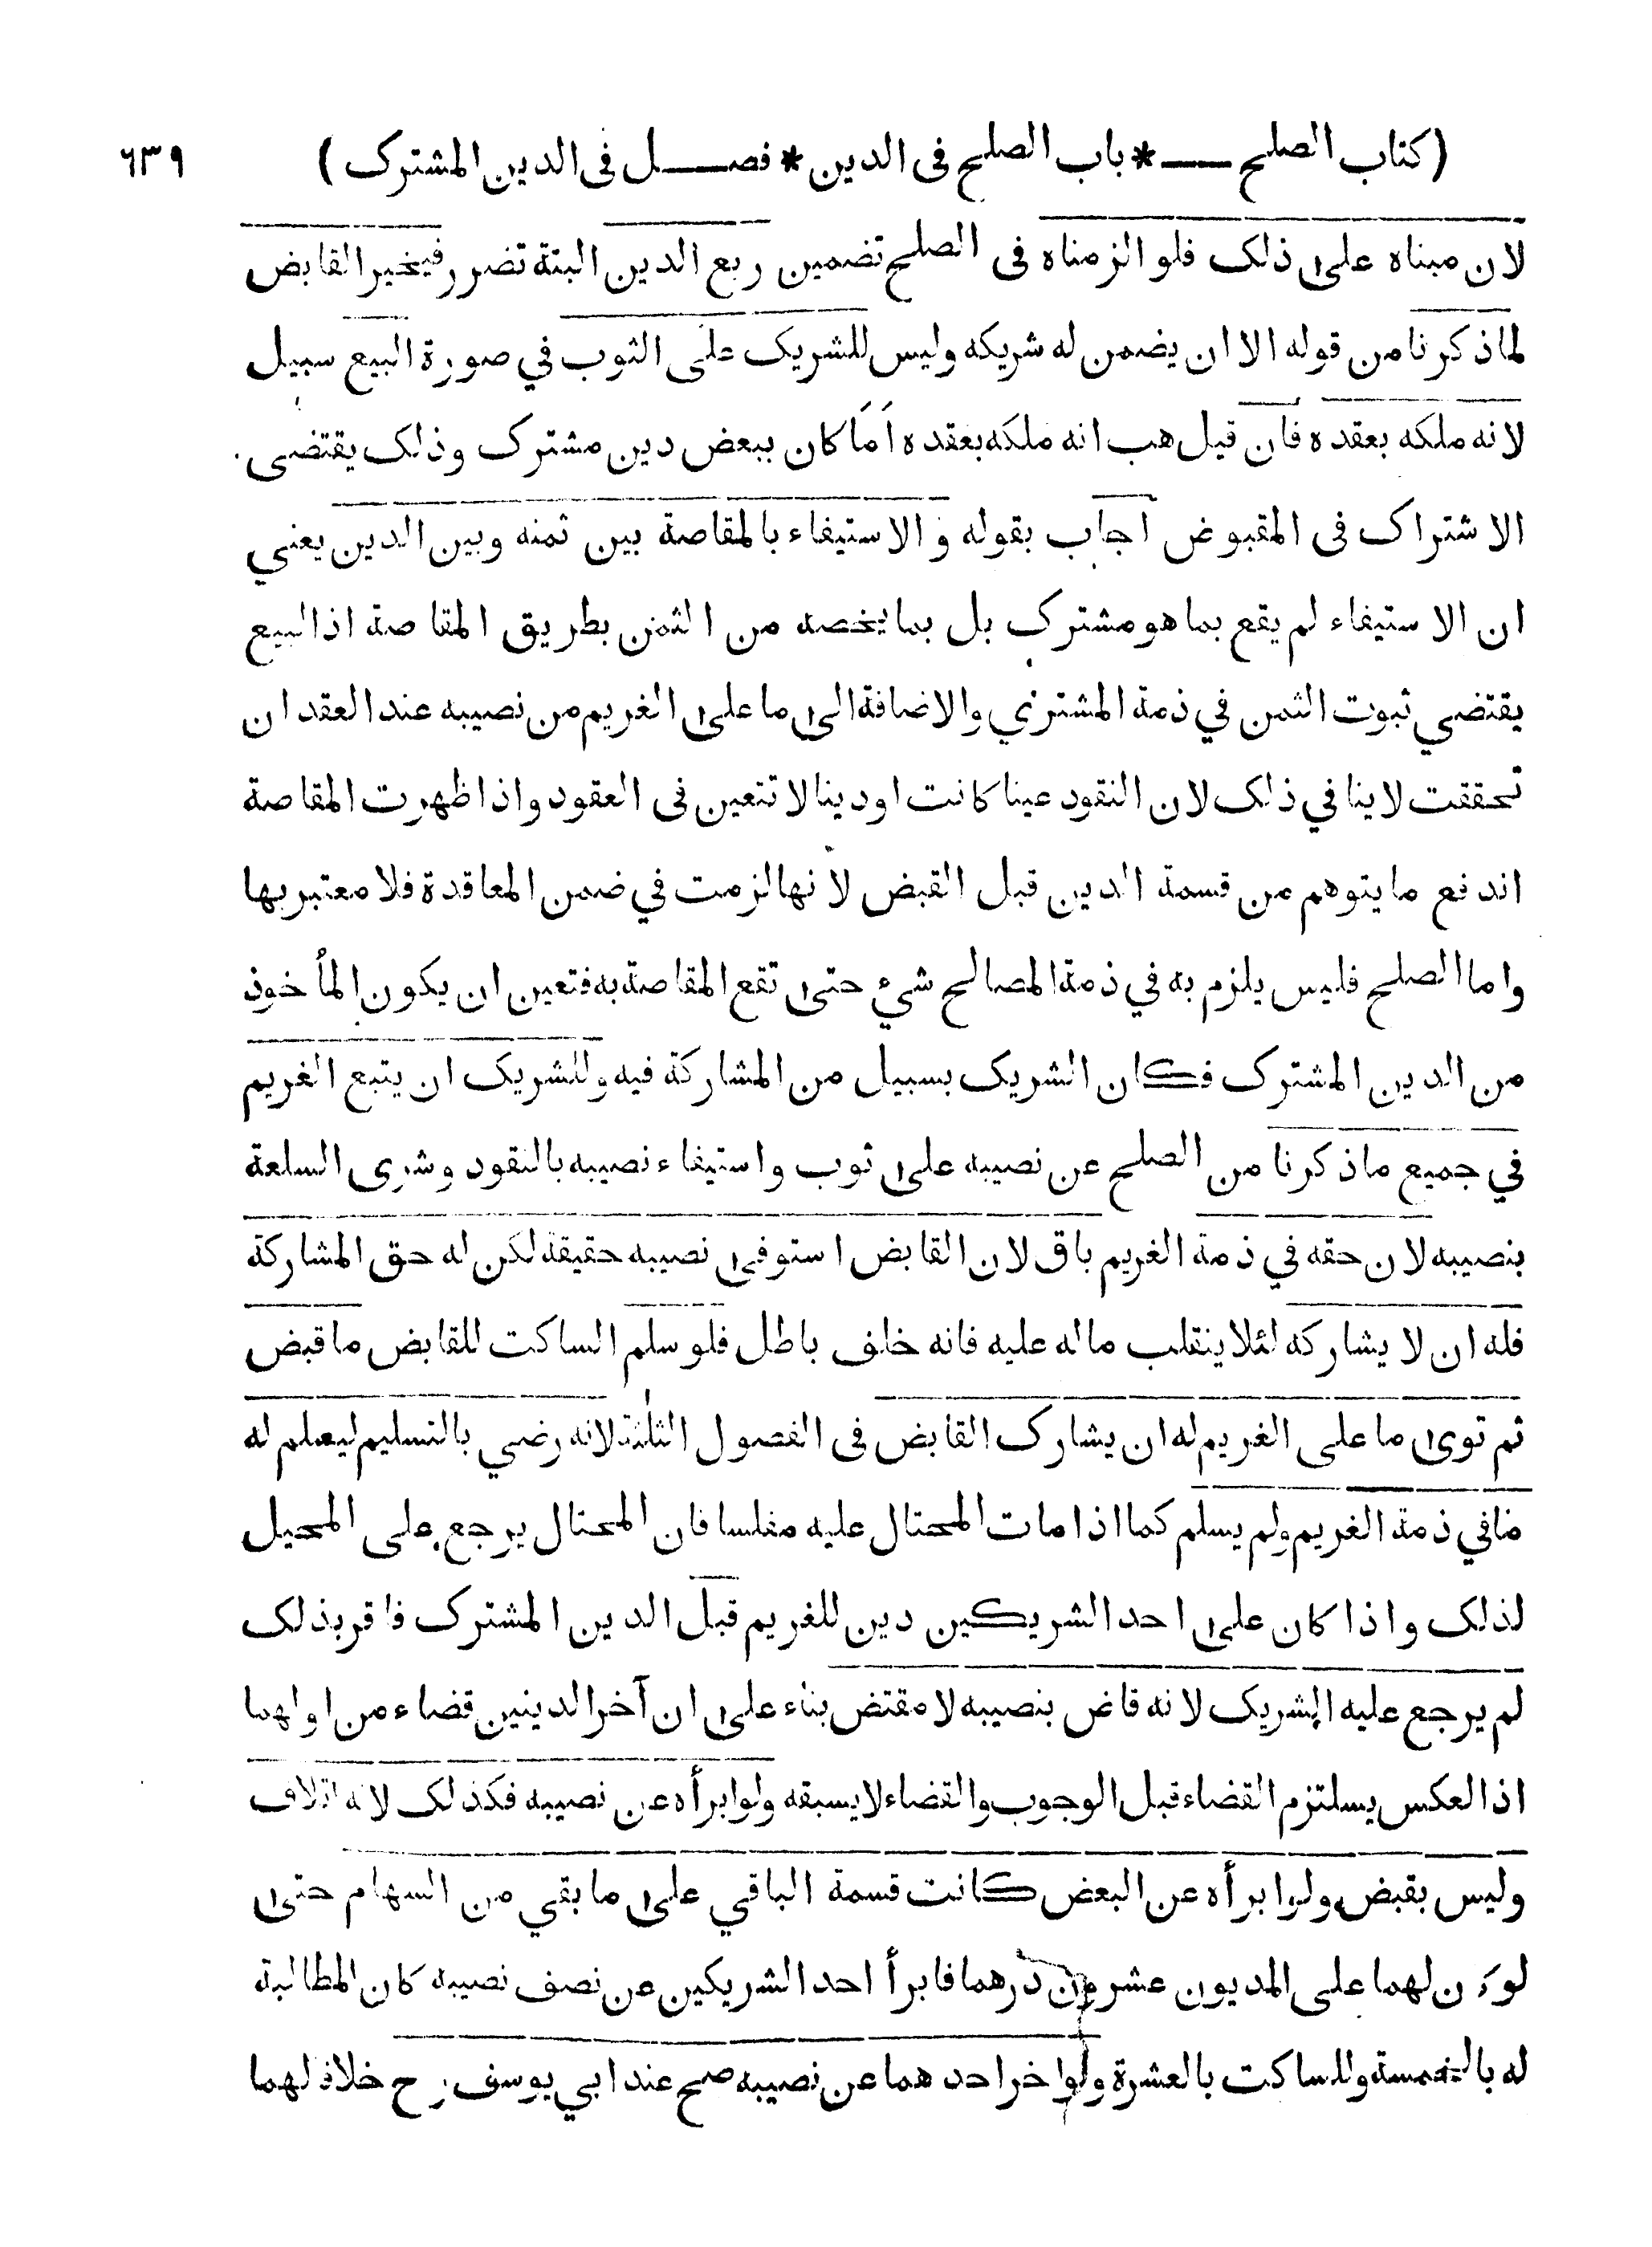 (كتاب الصلح ــ * باب الصلح فى الدين * فصــل فى الدين المشترك) ٦٣٩
لان مبناه على ذلك فلو الزمناه فى الصلح تضمين ربع الدين البتة تضرر فيخير القابض
لما ذكرنا من قوله الا ان يضمن له شريكه وليس للشريك على الثوب في صورة البيع سبيل
لانه ملكه بعقده فان قيل هب انه ملكه بعقده اما كان ببعض دين مشترك وذلك يقتضى
الاشتراك فى المقبوض اجاب بقوله والاستيفاء بالمقاصة بين ثمنه وبين الدين يعني
ان الاستيفاء لم يقع بما هو مشترك بل بما يخصه من الثمن بطريق المقاصة اذ البيع
يقتضي ثبوت الثمن في ذمة المشتري والاضافة الى ما على الغريم من نصيبه عند العقد ان
تحققت لا ينافي ذلك لان النقود عينا كانت او دينا لا تتعين فى العقود واذا ظهرت المقاصة
اندفع ما يتوهم من قسمة الدين قبل القبض لانها لزمت في ضمن المعاقدة فلا معتبر بها
واما الصلح فليس يلزم به في ذمة المصالح شيء حتى تقع المقاصة به فتعين ان يكون المأخوذ
من الدين المشترك فكان الشريك بسبيل من المشاركة فيه وللشريك ان يتبع الغريم
في جميع ما ذكرنا من الصلح عن نصيبه على ثوب واستيفاء نصيبه بالنقود وشرى السلعة
بنصيبه لان حقه في ذمة الغريم باق لان القابض استوفى نصيبه حقيقة لكن له حق المشاركة
فله ان لا يشاركه لئلا ينقلب ماله عليه فانه خلف باطل فلو سلم الساكت للقابض ما قبض
ثم توى ما على الغريم له ان يشارك القابض فى الفصول الثلثة لانه رضي بالتسليم ليسلم له
ما في ذمة الغريم ولم يسلم كما اذا مات المحتال عليه مفلسا فان المحتال يرجع على المحيل
لذلك واذا كان على احد الشريكين دين للغريم قبل الدين المشترك فاقر بذلك
لم يرجع عليه الشريك لانه قاض بنصيبه لا مقتض بناء على ان آخر الدينين قضاء من اولهما
اذ العكس يستلزم القضاء قبل الوجوب والقضاء لا يسبقه ولو ابرأه عن نصيبه فكذلك لانه اتلاف
وليس بقبض ولو ابرأه عن البعض كانت قسمة الباقي على ما بقي من السهام حتى
لو كان لهما على المديون عشرون درهما فابرأ احد الشريكين عن نصف نصيبه كان المطالبة
له بالخمسة وللساكت بالعشرة ولو اخر احدهما عن نصيبه صح عند ابي يوسف رح خلافا لهما